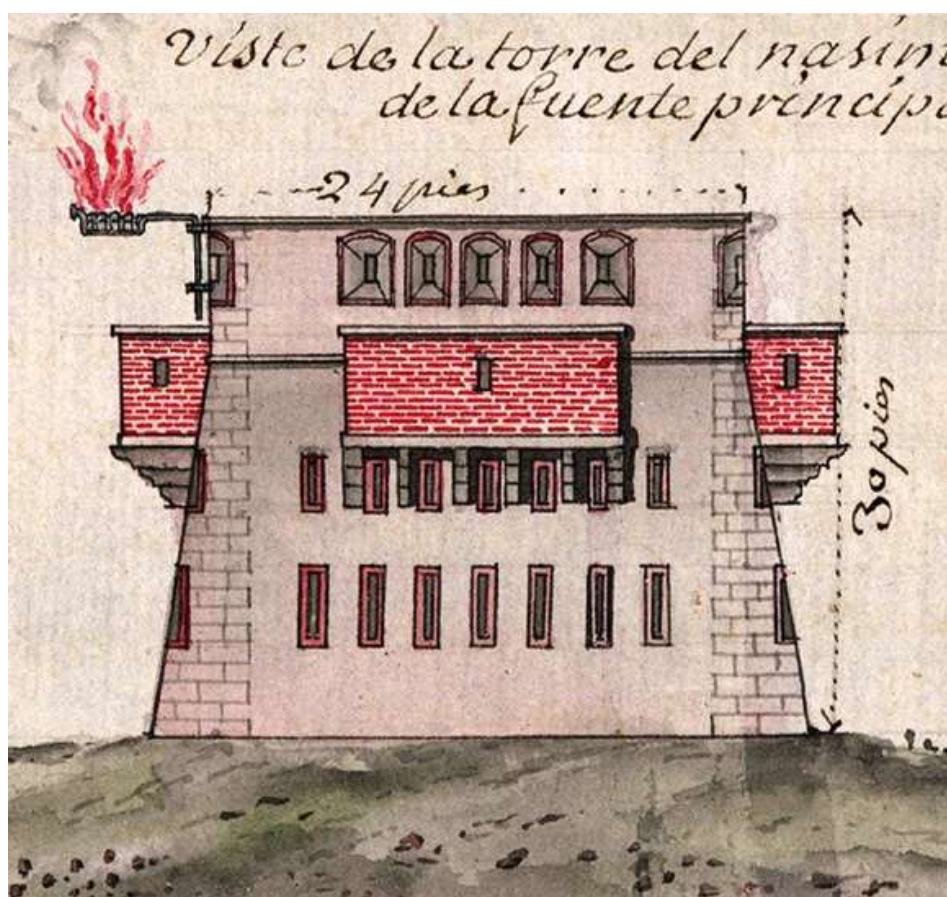 Viste de la torre del nasim
de la fuente princip
24 pies
30 pies